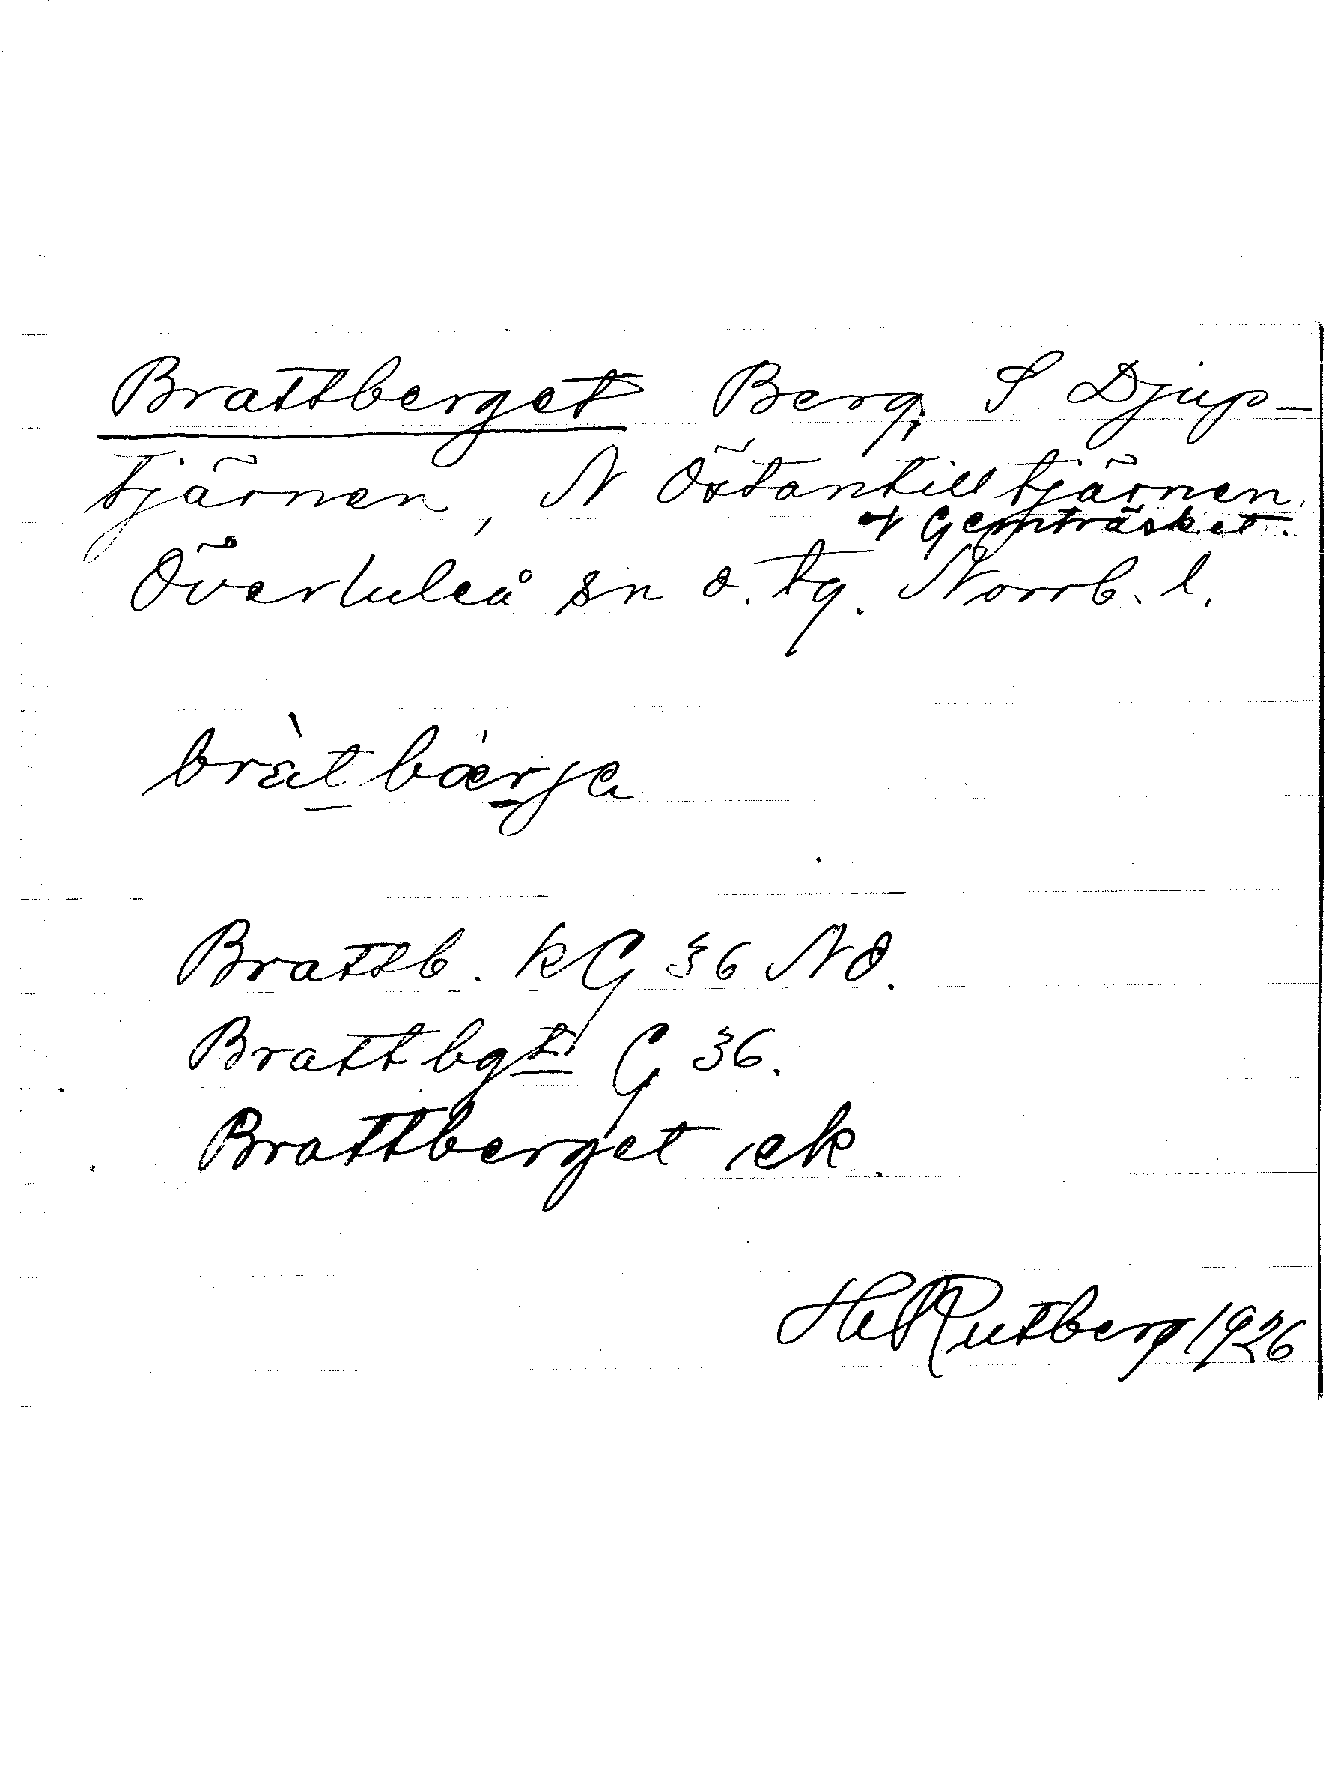 Brattberget Berg, S Djup-
tjärnen, N Östantilltjärnen
o Gemträsket.
Överluleå sn o. tg. Norrb. l.
bràt bærja
Brattb. kG 36 NO.
Brattbgt G 36.
Brattberget ek.
HRutberg 1926